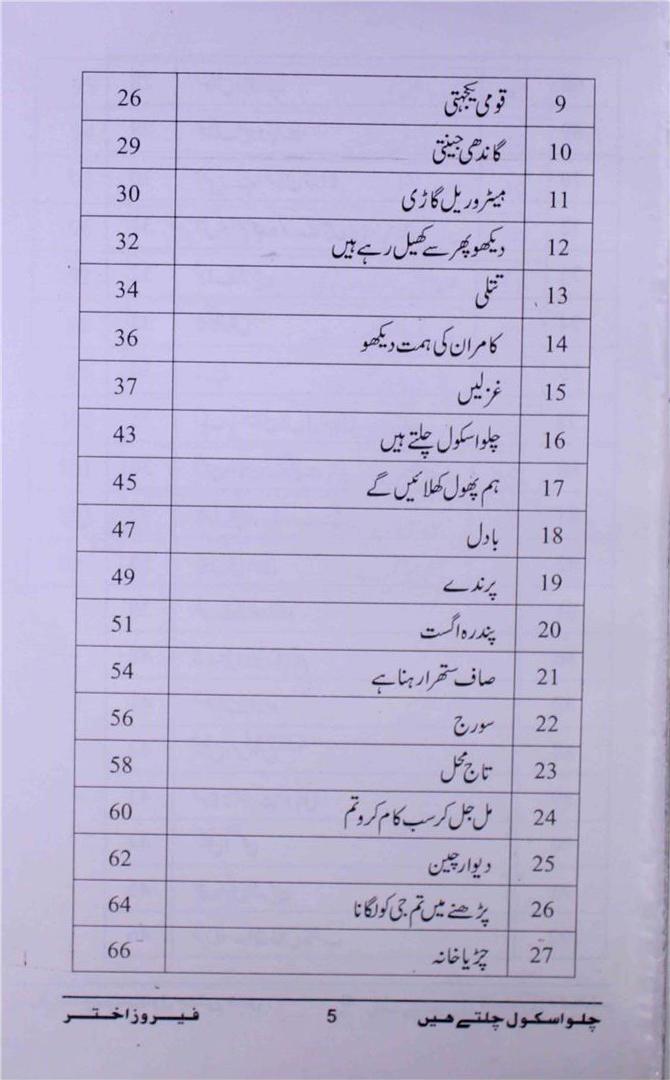 9 قومی یکجہتی 26
10 گاندھی جینتی 29
11 میٹرو ریل گاڑی 30
12 دیکھو پھر سے کھیل رہے ہیں 32
13 تتلی 34
14 کامران کی ہمت دیکھو 36
15 غزلیں 37
16 چلو اسکول چلتے ہیں 43
17 ہم پھول کھلائیں گے 45
18 بادل 47
19 پرندے 49
20 پندرہ اگست 51
21 صاف ستھرا رہنا ہے 54
22 سورج 56
23 تاج محل 58
24 مل جل کر سب کام کرو تم 60
25 دیوار چین 62
26 پڑھنے میں تم جی کو لگانا 64
27 چڑیا خانہ 66
چلو اسکول چلتے ھیں 5 فیروز اختر